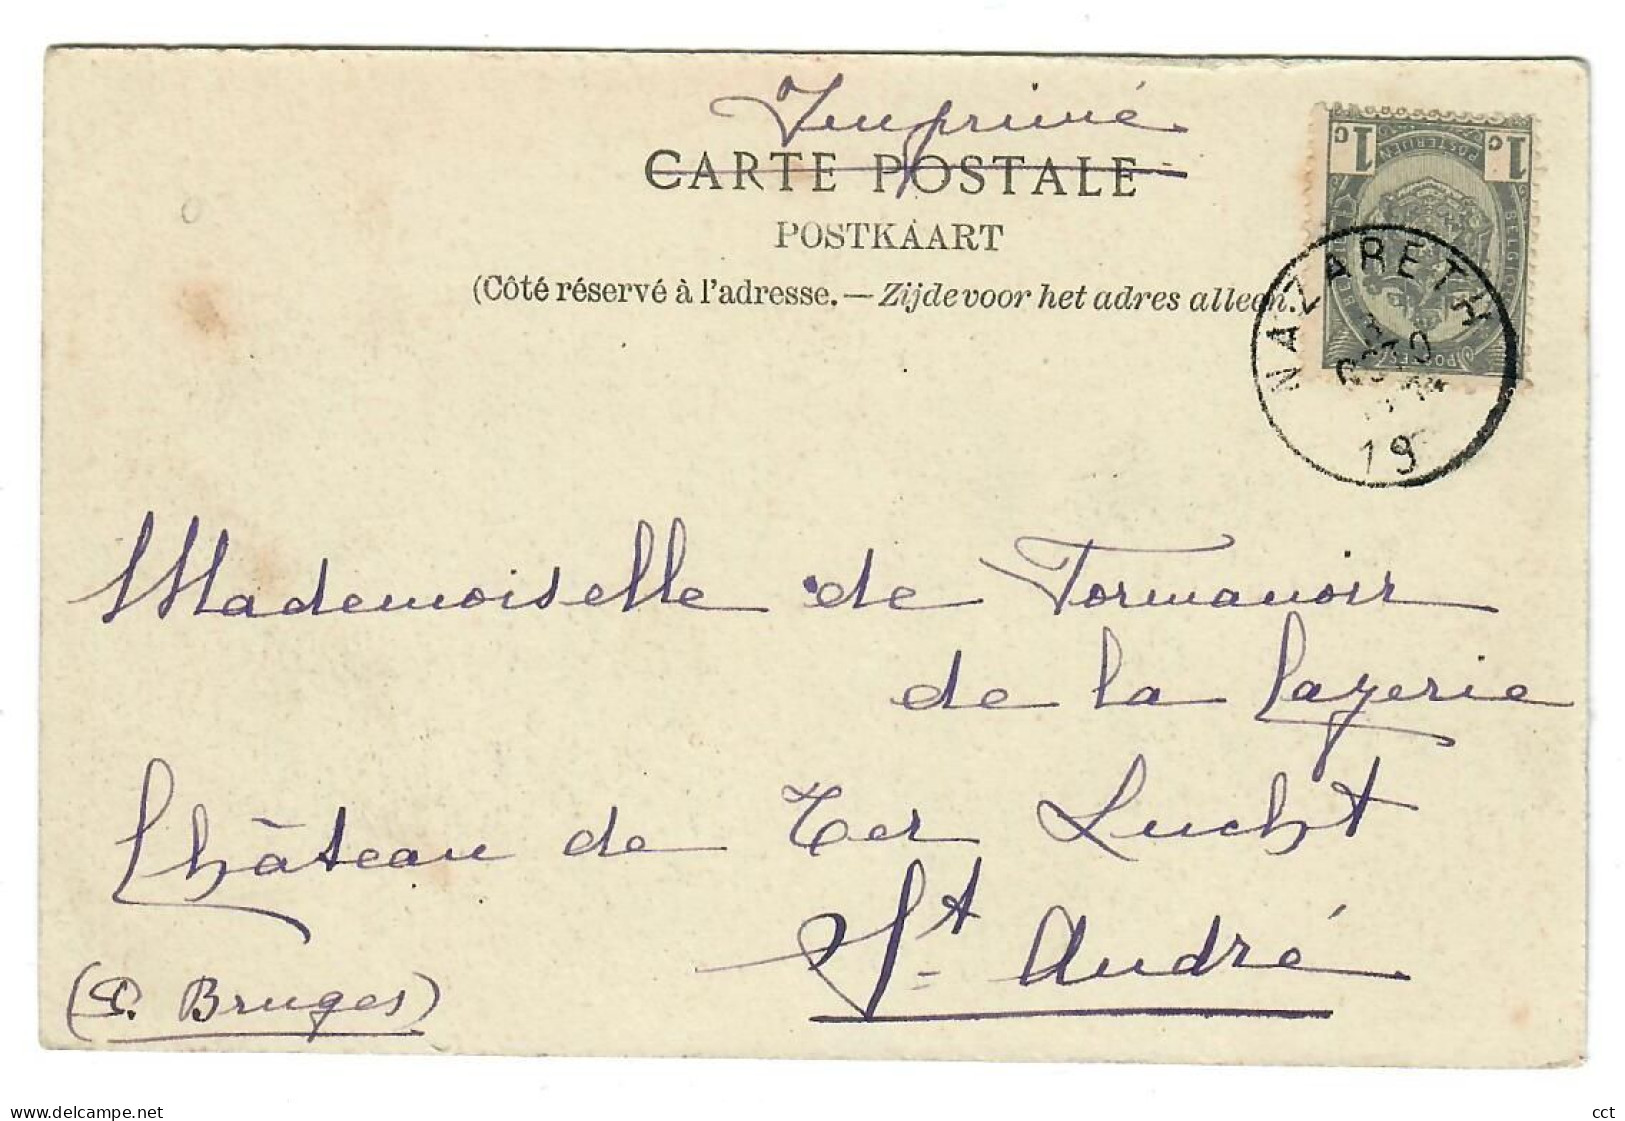 Imprimé
CARTE POSTALE
POSTKAART
(Côté réservé à l'adresse. — Zijde voor het adres alleen.)
1 c 1 c
POSTERIJEN
BELGIQUE
POSTES
NAZARETH
19
Mademoiselle de Formanoir
de la Cazerie
Château de Ter Lucht
St André
(p. Bruges)
www.delcampe.net
cct